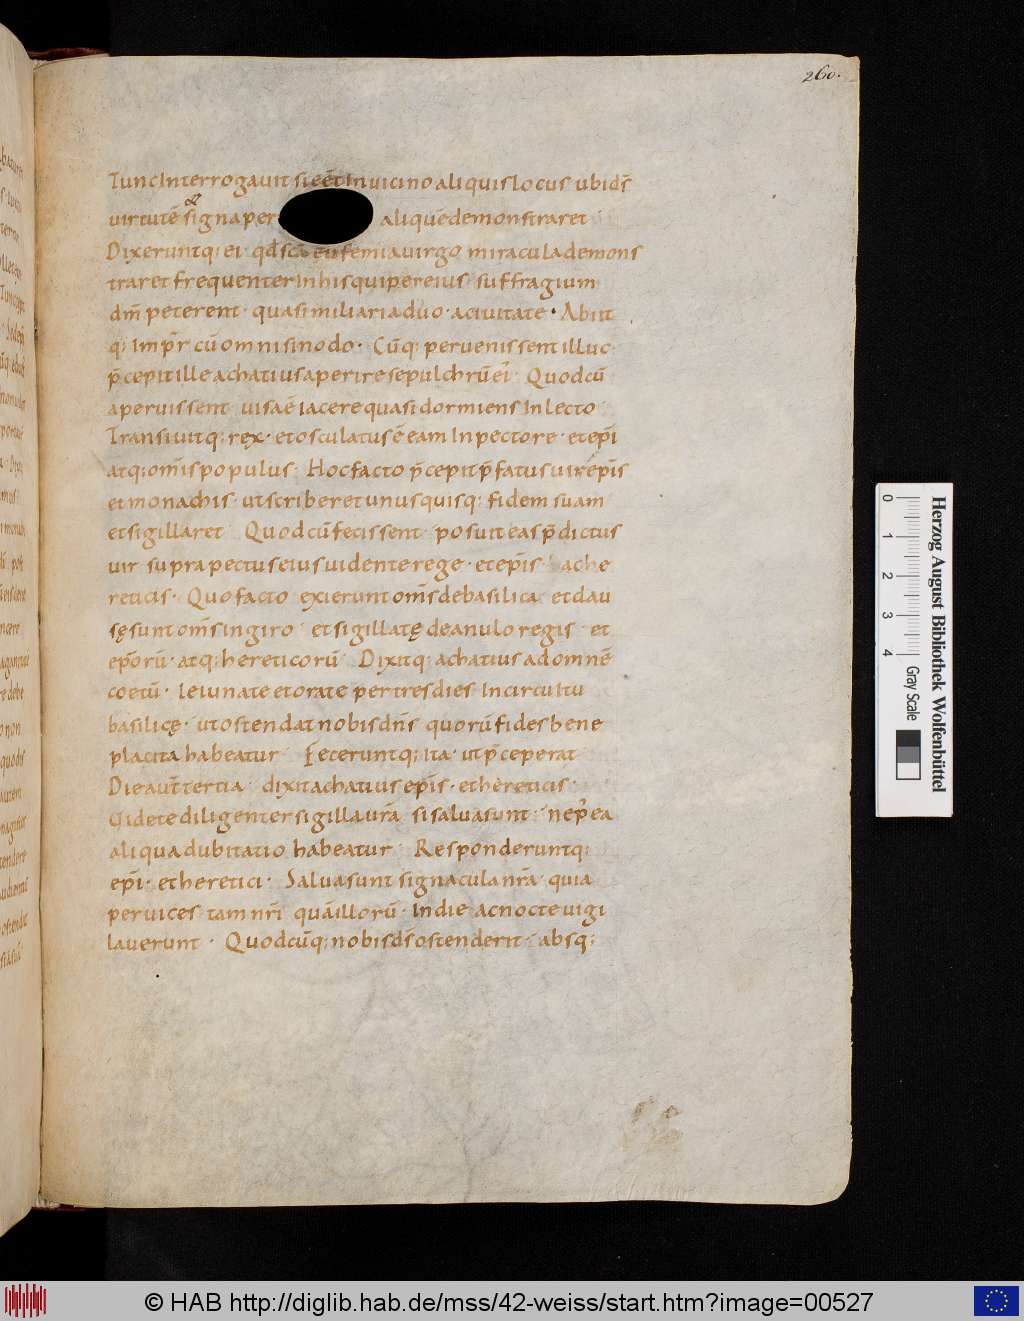 260.
Tunc Interrogavit si eēt In uicino aliquis locus ubi dś
uirtutē signa per aliquē demonstraret
Dixeruntq; ei qđ scā eufemia uirgo miracula demons
traret frequenter In his qui per eius suffragium
dm̄ peterent · quasi miliaria duo · a ciuitate · Abiit
q; Imp̄r cū omni sinodo · Cūq; peruenissent illuc
p̄cepit ille achatius aperire sepulchrū ei · Quod cū
aperuissent uisa ē iacere quasi dormiens In lecto
Transiuitq; rex · et osculatus ē eam In pectore · et ep̄i
atq; om̄is populus · Hoc facto p̄cepit p̄fatus uir ep̄is
et monachis · ut scriberet unusquisq; fidem suam
et sigillaret Quod cū fecissent · posuit eas p̄dictus
uir supra pectus eius uidente rege · et ep̄is · ac he
reticis · Quo facto exierunt om̄s de basilica et clau
sę sunt om̄s in giro · et sigillatę de anulo regis · et
ep̄orū · atq; hereticorū · Dixitq; achatius ad omnē
coetū · Ieiunate et orate per tres dies In circuitu
basilicę · ut ostendat nobis dn̄s quorū fides bene
placita habeatur Feceruntq; Ita · ut p̄ceperat
Die aut̄ tertia · dixit achatius ep̄is · et hereticis ·
Uidete diligenter sigilla ur̄a si salua sunt · ne p̄ ea
aliqua dubitatio habeatur · Responderuntq;
ep̄i · et heretici · Salua sunt signacula nr̄a · quia
per uices tam nr̄i quā illorū · In die ac nocte uigi
lauerunt · Quodcūq; nobis dś ostenderit · absq;
0 1 2 3 4
Herzog August Bibliothek Wolfenbüttel
Gray Scale
© HAB http://diglib.hab.de/mss/42-weiss/start.htm?image=00527